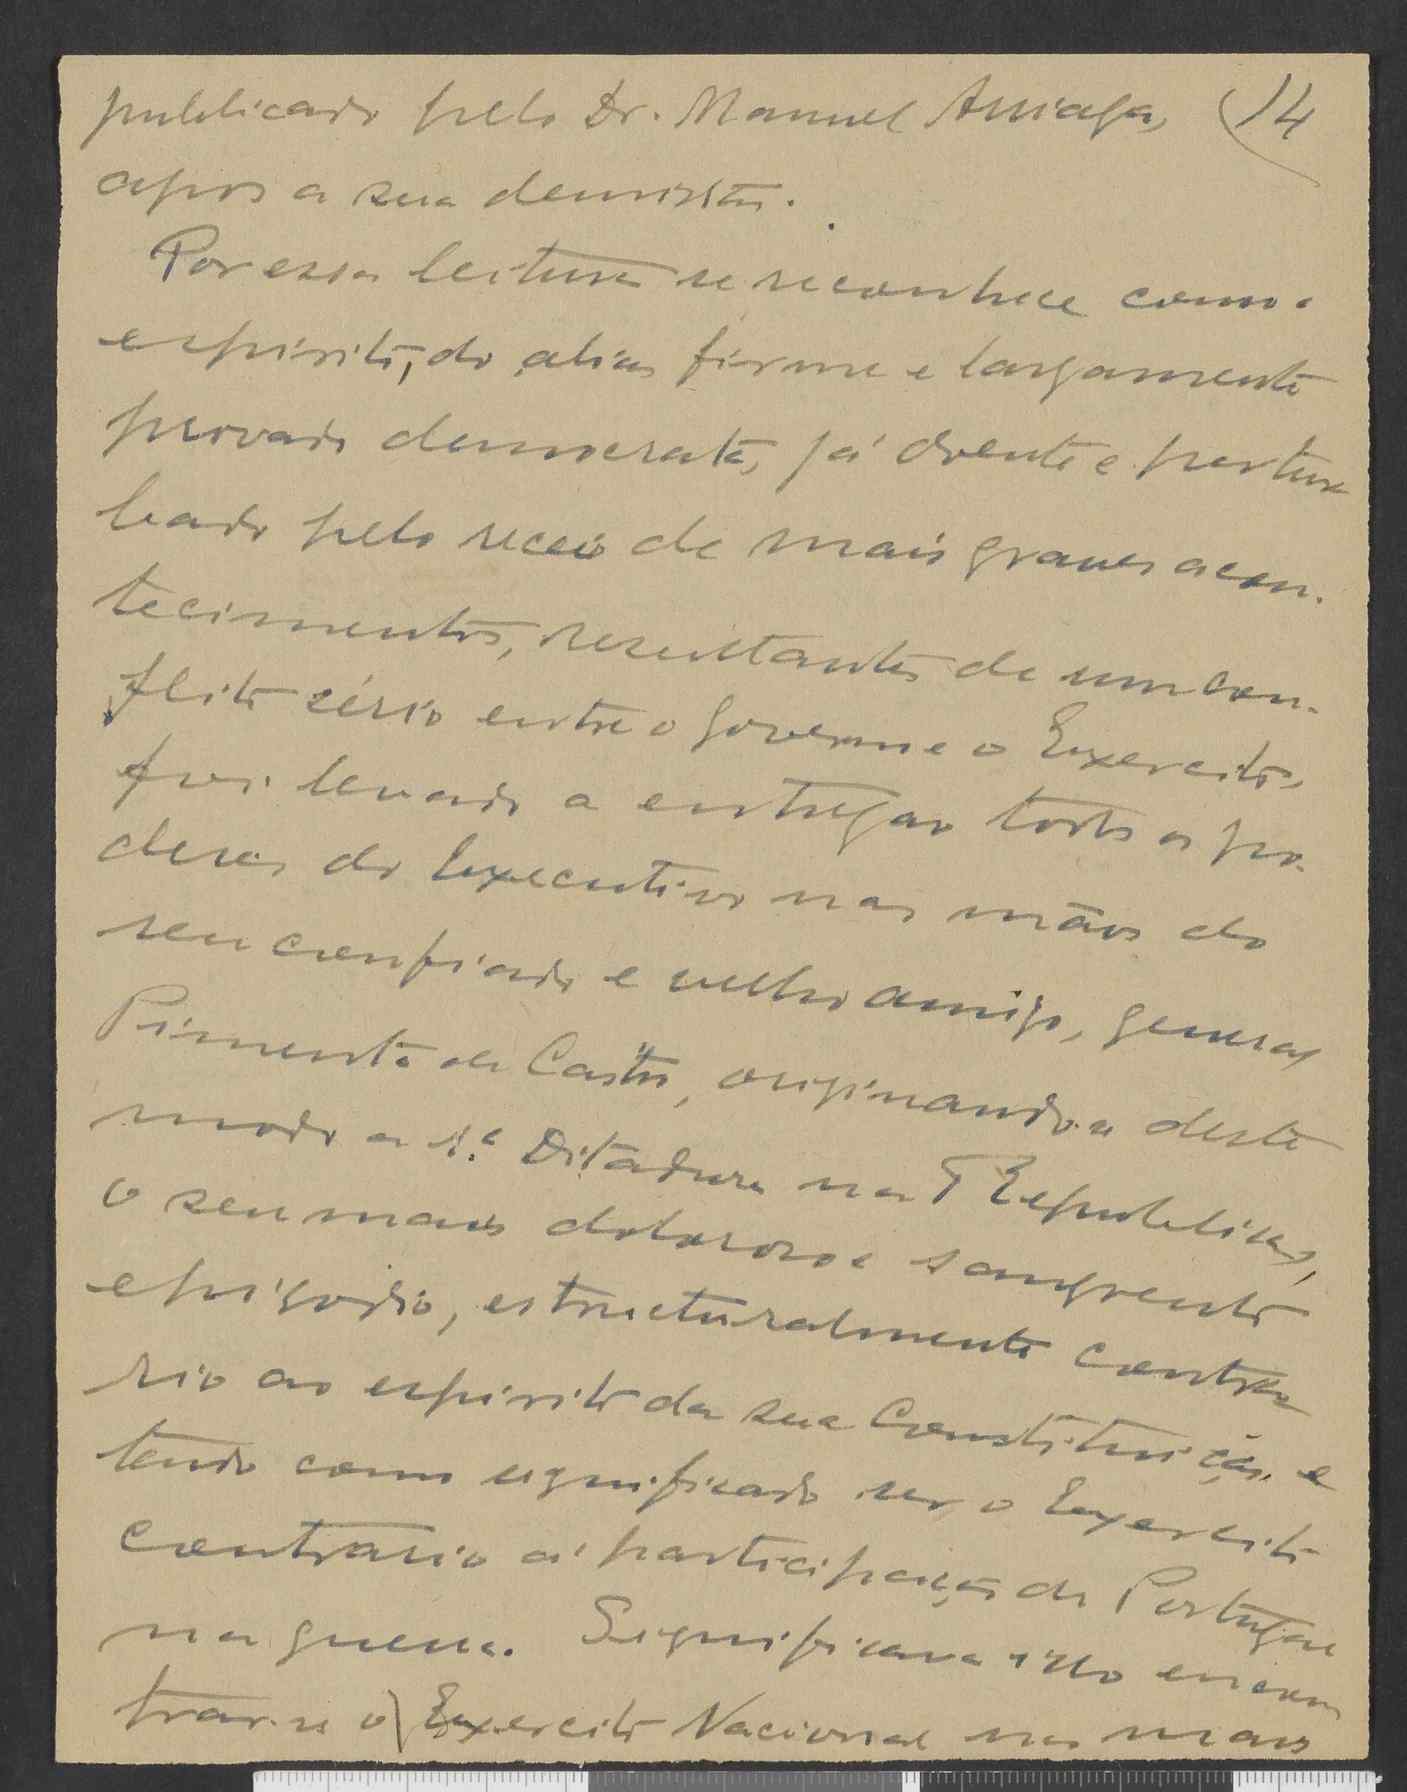 publicado pelo Dr. Manuel Arriaga, 14
apos a sua demissão.
Por essa leitura se reconhece como o
espirito, do alias firme e largamente
provado democrata, já doente e pertur
bado pelo receio de mais graves acon-
tecimentos, resultantes de um con-
flito sério entre o Governo e o Exercito,
foi levado a entregar todos os po-
deres do Executivo nas mãos do
seu confiado e velho amigo, general
Pimenta de Castro, originando-se deste
modo a 1.ª Ditadura na Republica,
o seu mais doloroso e sangrento
episodio, estructuralmente contra
rio ao espirito da sua Constituição e
tendo como significado ser o Exercito
contrario á participação de Portugal
na guerra. Significava isso encon
trar-se o Exercito Nacional nas mãos